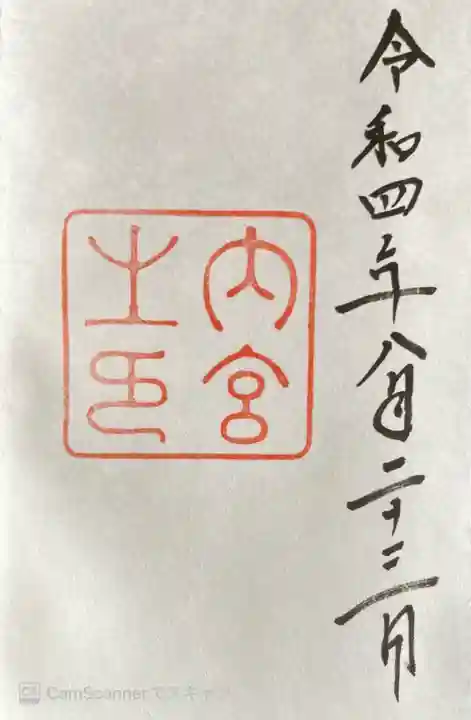 令和四年八月二十三日
内宮
之印
CS CamScannerでスキャン